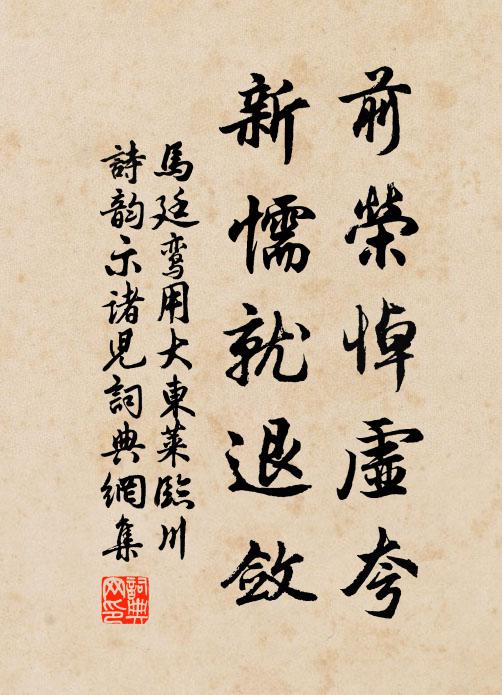 前榮悼虛夸
新懦就退斂
馬廷鸾用大東萊臨川
詩韵示諸児詞典網集
詞典网印